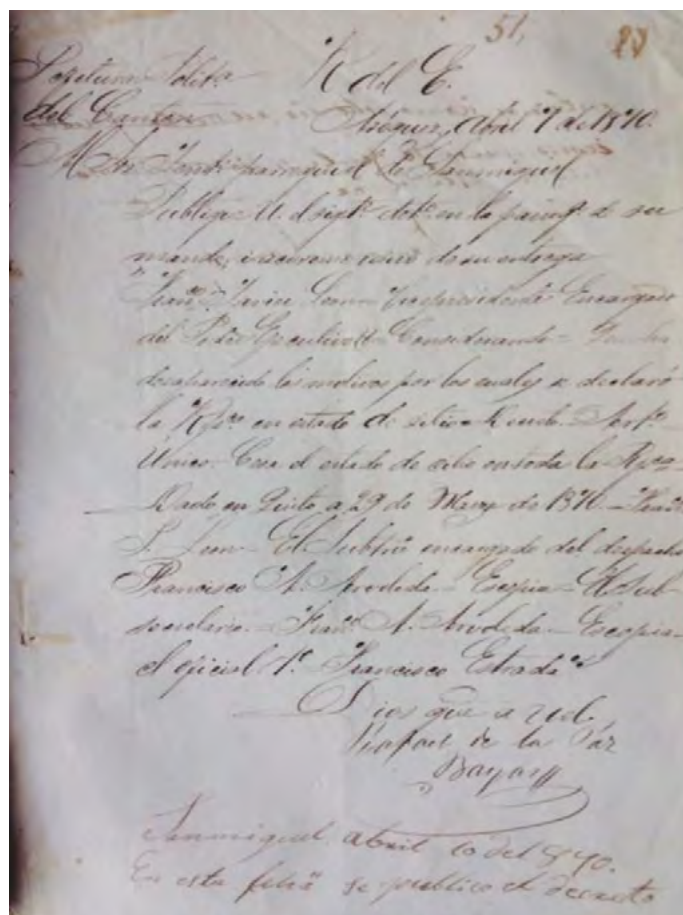 51, 23
Jefetura Polit.ª R del E.
del Canton Azogues, abril 7 de 1870.
Al Sor Tente parroquial de Sanmiguel
Publiqe U. el sigte dcto en la parroqª de su
mando, i avíseme recivo de su entrega
"Franco Javier Leon Vicepresidente Encargado
del Poder Ejecutivo Considerando =
desaparecido los motivos por los cuales se declaró
la Rpca en estado de sitio Decreta Arto
Unico. Cesa el estado de sitio en toda la Rpca
Dado en Quito a 29 de Marzo de 1870 = Franco
J. Leon = El Subsrio encargado del despacho
Francisco A. Arvoleda = Es copia = El Sub-
secretario = Franco A. Arvoleda = Es copia =
el oficial 1º Francisco Estrada"
Dios gue a Ud.
Rafael de la Paz
Bayas
Sanmiguel abril 10 del 870.
En esta fecha se publico el decreto